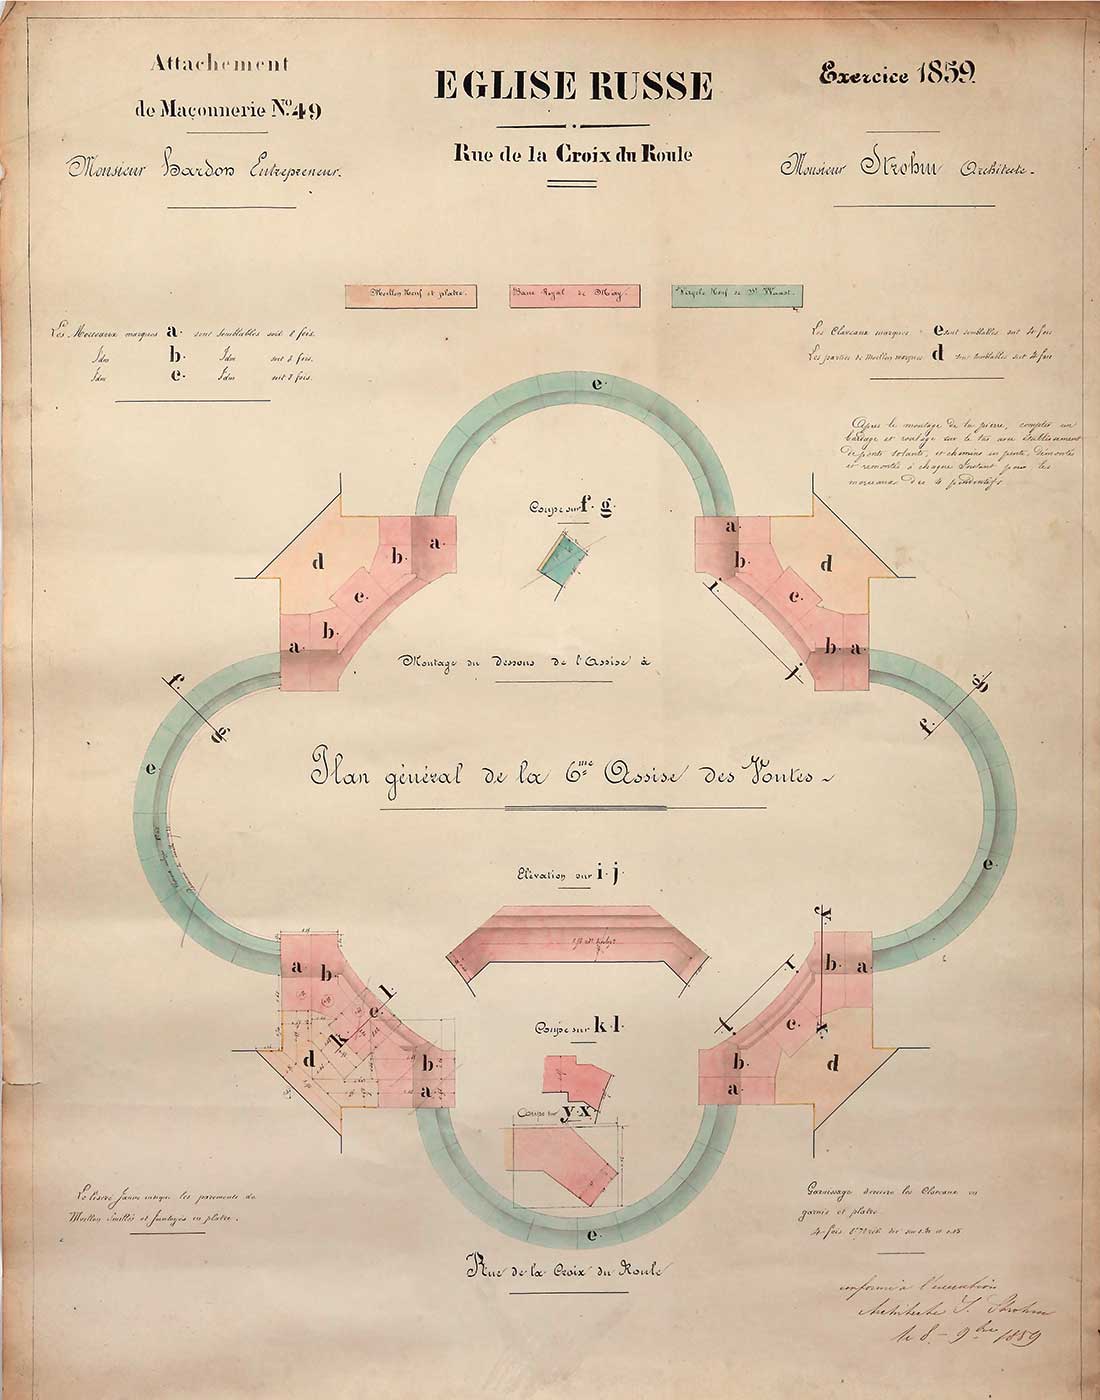 Attachement
de Maçonnerie Nº 49
Monsieur Hardon Entrepreneur.
EGLISE RUSSE
Rue de la Croix du Roule
Exercice 1859.
Monsieur Strohm Architecte
Moellon Neuf et platre.
Banc Royal de Méry.
Vergelé Neuf de St Waast.
Les Morceaux marqués a. sont semblables soit 8 fois.
Idm b. Idm soit 8 fois.
Idm c. Idm soit
Les Claveaux marqués e sont semblables soit 4 fois
Les parties de Moellon marquées d sont semblables soit 4 fois
Après le montage de la pierre, compter un
bardage et roulage sur le tas avec établissement
de ponts volants, et chemins en pente, démontés
et remontés à chaque instant pour les
morceaux des 4 pendentifs
e
Coupe sur f. g.
a.
b.
d
c.
b.
a.
a.
b.
c.
d
b.
a.
i.
j
Montage au dessous de l'Assise à
f.
g.
f.
g.
Plan général de la 6me Assise des Voutes
e
e
Elévation sur i. j
Coupe sur k. l.
Coupe sur y. x
a
b
c.
l
k
d
b
a
y.
x
b.
a.
i
j.
c.
d
b
a
e
Le liseré jaune indique les parements de
Moellon Smillés et Jointoyés en platre.
Garnissage derrière les Claveaux en
garnis et platre
4 fois
Rue de la Croix du Roule
conforme à l'exécution
Architecte J. Strohm
le 8 - 9bre 1859